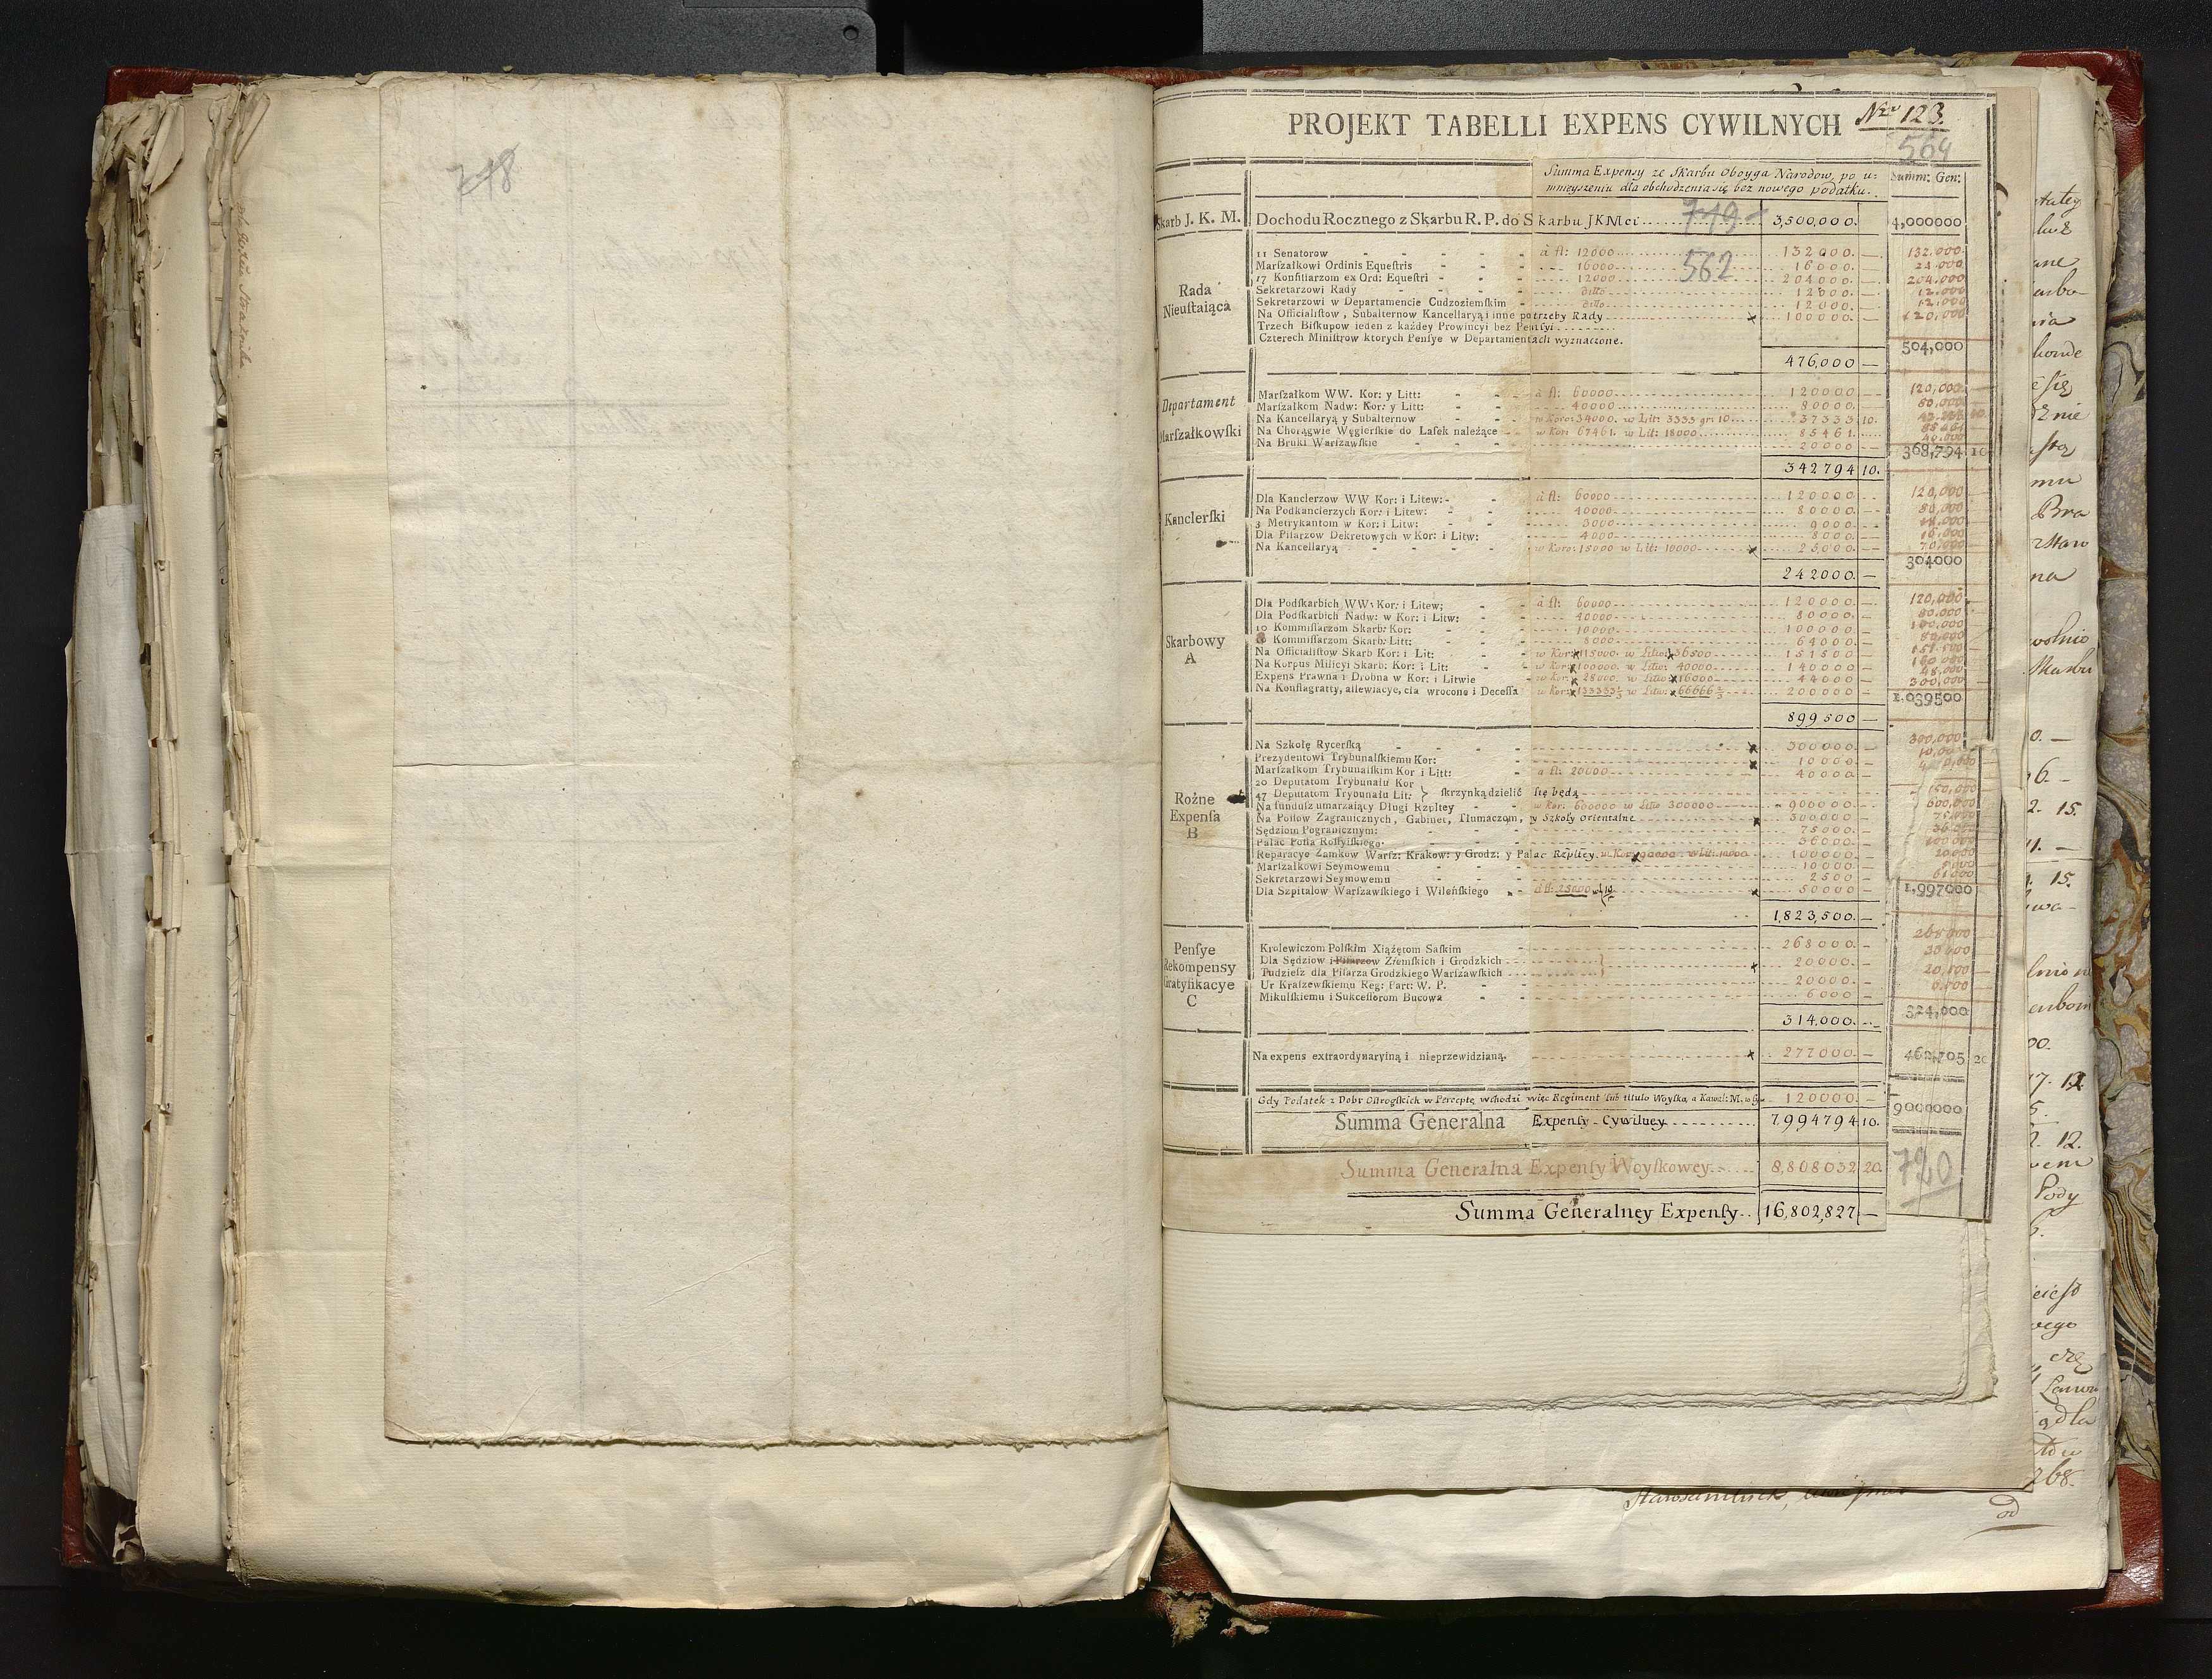 248
PROJEKT TABELLI EXPENS CYWILNYCH Nro 123.
564
Summa Expensy ze Skarbu Oboyga Narodow, po u-
mnieyszeniu dla obchodzenia się bez nowego podatku.
Summ: Gen:
Skarb J. K. M. Dochodu Rocznego z Skarbu R. P. do Skarbu JKMci 719 3,500,000. 4,000000
562
Rada Nieuſtaiąca
11 Senatorow à fl: 12000 132000. 132.000
Marſzałkowi Ordinis Equeſtris 16000 16000. 24.000
17 Konſiliarzom ex Ord: Equeſtri 12000 204000. 204.000
Sekretarzowi Rady ditto 12000. 12.000
Sekretarzowi w Departamencie Cudzoziemſkim ditto 12000. 12.000
Na Officialiſtow, Subalternow Kancellaryą i inne potrzeby Rady 100000. 120,000
Trzech Biſkupow ieden z każdey Prowincyi bez Penſyi
Czterech Miniſtrow ktorych Penſye w Departamentach wyznaczone.
504,000
476,000 —
Departament Marſzałkowſki
Marſzałkom WW. Kor: y Litt: à fl: 60000 120000 — 120,000
Marſzałkom Nadw: Kor: y Litt: 40000 80000 — 80,000
Na Kancellaryą y Subalternow w Koro: 34000. w Lit: 3333 gr: 10. 37333 10.
Na Chorągwie Węgierſkie do Laſek należące w Kor: 67461. w Lit: 18000 85461. 85461
Na Bruki Warſzawſkie 20000 — 40.000
368,794 10
342794 10.
Kanclerſki
Dla Kanclerzow WW Kor: i Litew: à fl: 60000 120000 120,000
Na Podkanclerzych Kor: i Litew: 40000 80000 80,000
3 Metrykantom w Kor: i Litw: 3000 9000
Dla Piſarzow Dekretowych w Kor: i Litw: 4000 8000 16.000
Na Kancellaryą w Koro: 15000 w Lit: 10000 25,000 70,000
304000
242000. —
Skarbowy A
Dla Podſkarbich WW: Kor: i Litew; à fl: 60000 120000. 120,000
Dla Podſkarbich Nadw: w Kor: i Litw: 40000 80000. 80.000
10 Kommiſſarzom Skarb: Kor: 10000 100000. 100,000
8 Kommiſſarzom Skarb: Litt: 8000 64000.
Na Officialiſtow Skarb Kor: i Lit: w Kor: 115000. w Litw: 36500 151500 151.500
Na Korpus Milicyi Skarb: Kor: i Lit: w Kor: 100000. w Litw: 40000 140000
Expens Prawna i Drobna w Kor: i Litwie w Kor: 28000. w Litw: 16000 44000 48.000
Na Konflagratty, allewiacye, cła wrocone i Deceſſa w Kor: 133333⅓ w Litw: 66666⅔ 200000 300,000
1.039500
899500 —
Rożne Expenſa B
Na Szkołę Rycerſką 300000. 300,000
Prezydentowi Trybunalſkiemu Kor: 10000.
Marſzałkom Trybunalſkim Kor i Litt: a fl: 20000 40000
20 Deputatom Trybunału Kor
47 Deputatom Trybunału Lit: } ſkrzynką dzielić ſię będą
Na fundusz umarzaiący Długi Rzpltey w Kor: 600000 w Litw 300000 900000 600,000
Na Poſłow Zagranicznych, Gabinet, Tłumaczom, y Szkoły Orientalne 300000
Sędziom Pogranicznym: 75000
Pałac Poſła Roſſyiſkiego. 36000
Reparacye Zamkow Warſz: Krakow: y Grodz: y Pałac Rzpltey. w Kor: 90000 w Lit: 10000 100000 100000
Marſzałkowi Seymowemu 10000 20000
Sekretarzowi Seymowemu 2500
Dla Szpitalow Warſzawſkiego i Wileńſkiego à fl: 25000 50000
1,997000
1,823,500. —
Penſye Rekompensy Gratyfikacye C
Krolewiczom Polſkim Xiążętom Saſkim 268000. 268.000
Dla Sędziow i Piſarzow Ziemſkich i Grodzkich 20000. 30000
Tudzieſz dla Piſarza Grodzkiego Warſzawſkich
Ur Kraſzewſkiemu Reg: Part: W. P. 20000. 20,000
Mikulſkiemu i Sukceſſorom Bucowa 6000 6.000
324,000
314,000.
Na expens extraordynaryiną i nieprzewidzianą. 277000. 462,705 20
Gdy Podatek z Dobr Oſtrogſkich w Perceptę wchodzi więc Regiment ſub titulo Woyſka, a Kawal: M. 120000. —
9000000
Summa Generalna Expenſy Cywilney 7,994794 10.
Summa Generalna Expenſy Woyſkowey 8,808032 20.
720
Summa Generalney Expenſy 16,802,827 —